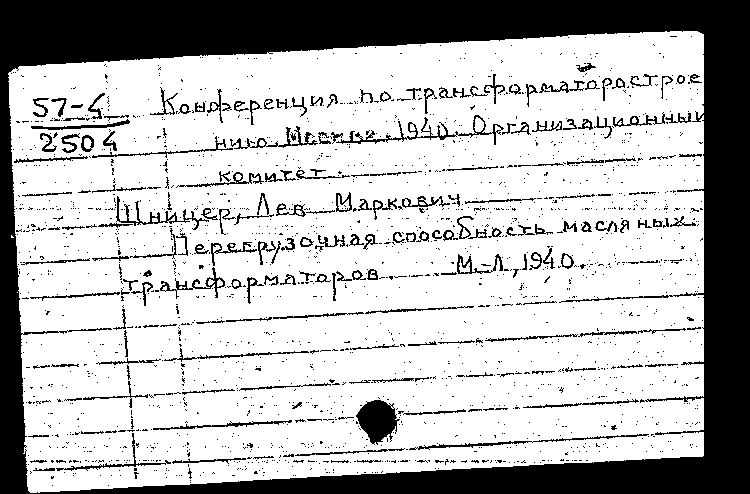 57-4
2504
Конференция по трансформаторострое
нию. Москва. 1940. Организационный
комитет.
Шницер, Лев Маркович
Перегрузочная способность масляных
трансформаторов. М.-Л., 1940.